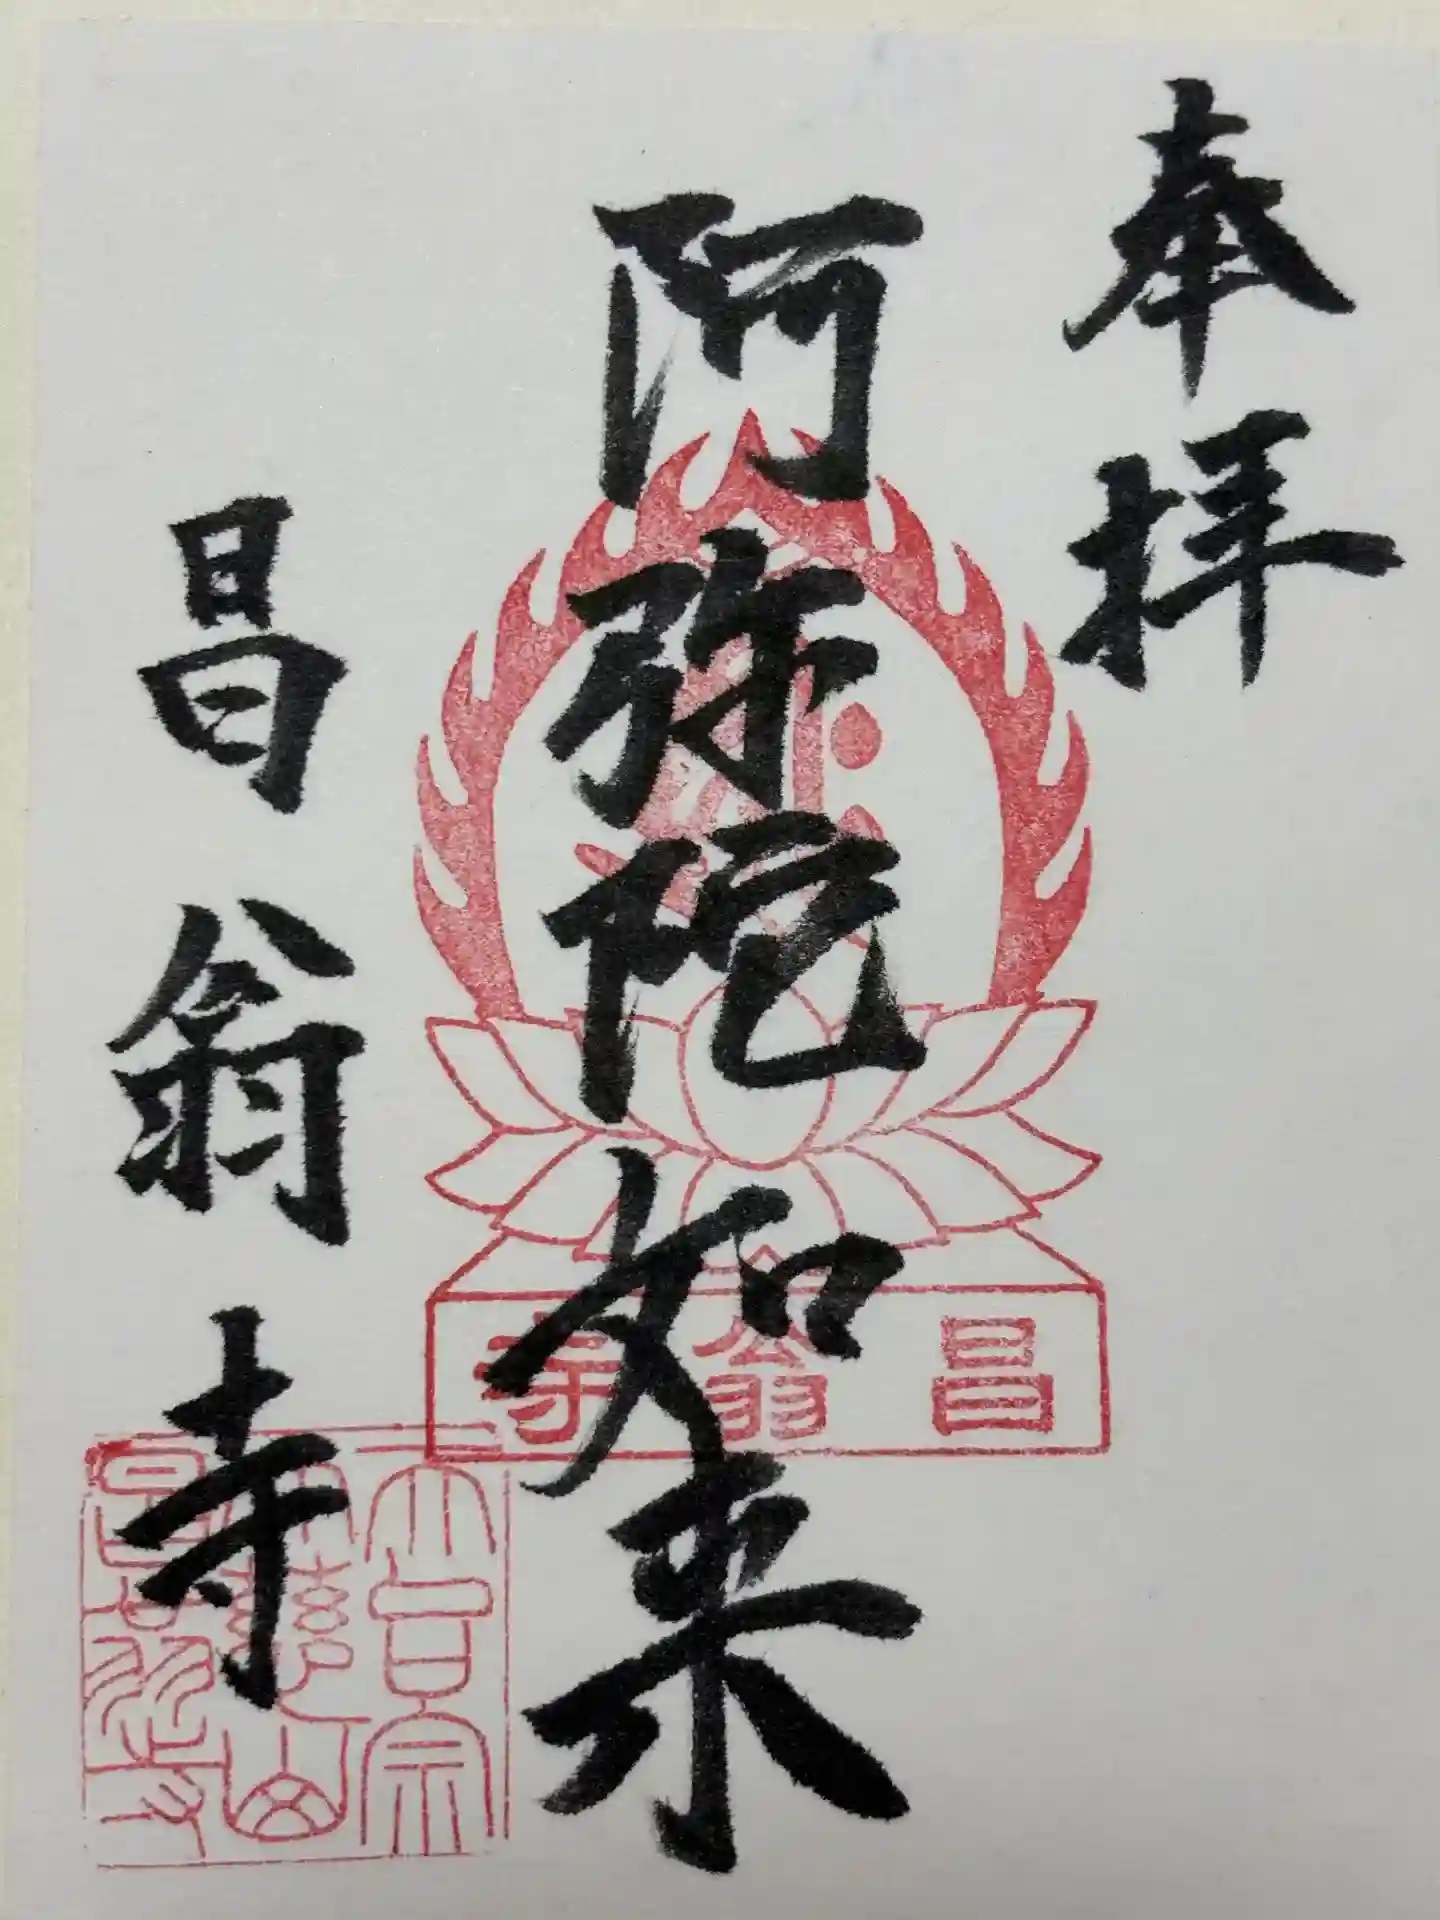 奉拝
阿弥陀如来
昌翁寺
昌翁寺